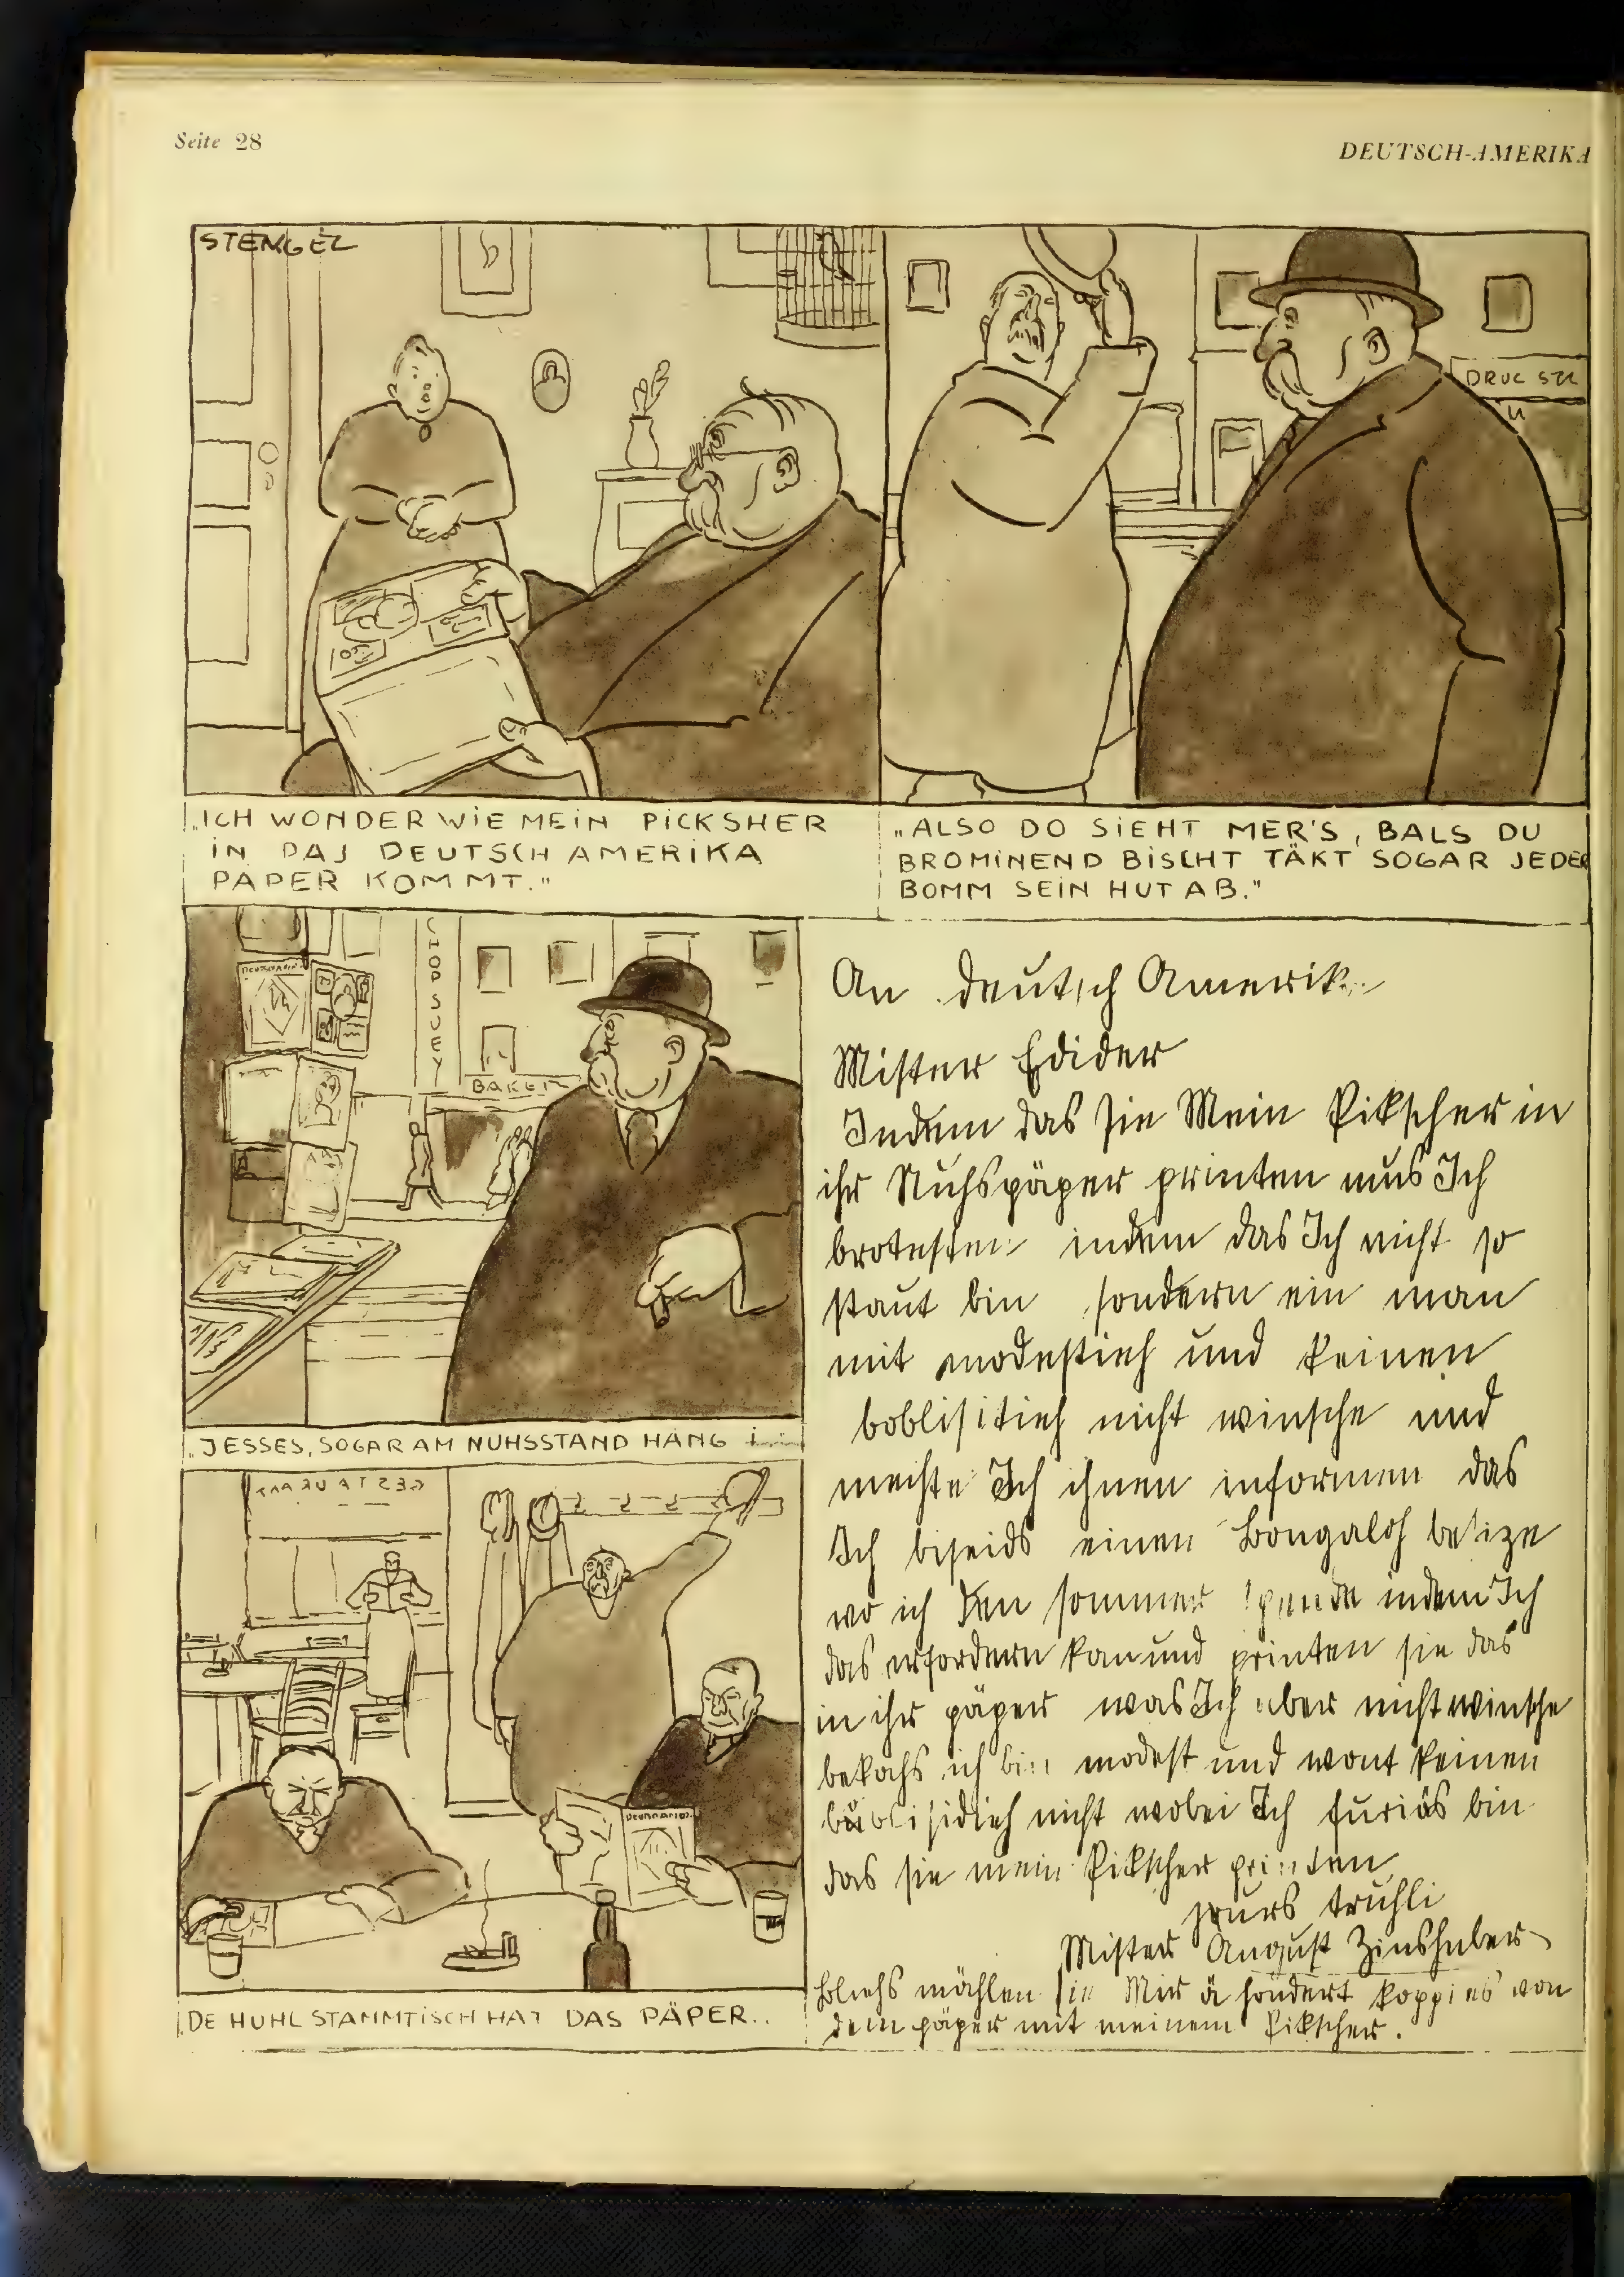 Seite 28
DEUTSCH-AMERIKA
STENGEL
DRUC STU
„ICH WONDER WIE MEIN PICKSHER
IN DAS DEUTSCH AMERIKA
PAPER KOMMT."
„ALSO DO SIEHT MER'S, BALS DU
BROMINEND BISCHT TÄKT SOGAR JEDER
BOMM SEIN HUT AB."
CHOP SUEY
BAKER
„JESSES, SOGAR AM NUHSSTAND HÄNG I
RESTAURANT
DE HUHL STAMMTISCH HAT DAS PÄPER..
An Deutsch Amerika
Mister Edider
Indem das sie Mein Pikscher in
ihr Nuhspäper printen mus Ich
brotesten indem das Ich nicht so
staut bin sondern ein man
mit modestieh und keinen
boblisitieh nicht winsche und
mechte Ich ihnen informen das
Ich biseids einen Bongaloh besize
wo ich den sommer spende indem Ich
das erfordern kan und printen sie das
in ihr päper was Ich aber nicht winsche
bekohs ich bin modest und wont keinen
boblisidieh nicht wobei Ich furiös bin
das sie mein Pikscher printen
yours truhli
Mister August Zinshuber
Bliehs mählen sie Mir ä hondert koppies von
dem päper mit meinem Pikscher.